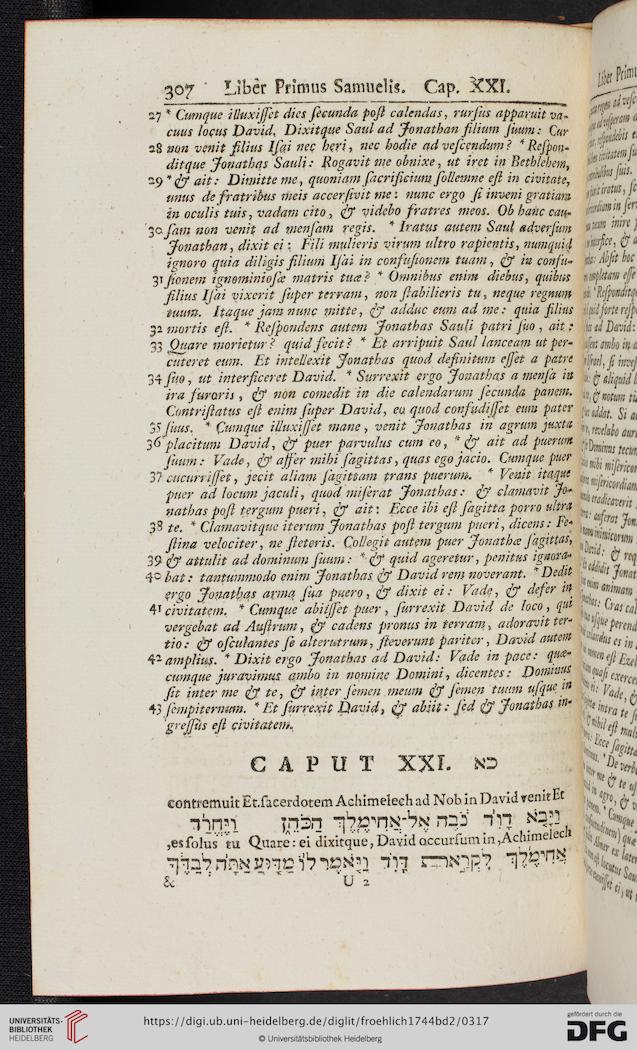 307 Liber Primus Samuelis. Cap. XXI.
27 * Cumque illuxisset dies secunda post calendas, rursus apparuit va-
cuus locus David. Dixitque Saul ad Jonathan filium suum: Cur
28 non venit filius Isai nec heri, nec hodie ad vescendum? * Respon-
ditque Jonathas Sauli: Rogavit me obnixe, ut iret in Bethlehem,
29 * & ait: Dimitte me, quoniam sacrificium sollemne est in civitate,
unus de fratribus meis accersivit me: nunc ergo si inveni gratiam
in oculis tuis, vadam cito, & videbo fratres meos. Ob hanc cau-
30 sam non venit ad mensam regis. * Iratus autem Saul adversum
Jonathan, dixit ei: Fili mulieris virum ultro rapientis, numquid
ignoro quia diligis filium Isai in confusionem tuam, & in confu-
31 sionem ignominiosæ matris tuæ? * Omnibus enim diebus, quibus
filius Isai vixerit super terram, non stabilieris tu, neque regnum
tuum. Itaque jam nunc mitte, & adduc eum ad me: quia filius
32 mortis est. * Respondens autem Jonathas Sauli patri suo, ait:
33 Quare morietur? quid fecit? * Et arripuit Saul lanceam ut per-
cuteret eum. Et intellexit Jonathas quod definitum esset a patre
34 suo, ut interficeret David. * Surrexit ergo Jonathas a mensa in
ira furoris, & non comedit in die calendarum secunda panem.
Contristatus est enim super David, eo quod confudisset eum pater
35 suus. * Cumque illuxisset mane, venit Jonathas in agrum juxta
36 placitum David, & puer parvulus cum eo, * & ait ad puerum
suum: Vade, & affer mihi sagittas, quas ego jacio. Cumque puer
37 cucurrisset, jecit aliam sagittam trans puerum. * Venit itaque
puer ad locum jaculi, quod miserat Jonathas: & clamavit Jo-
nathas post tergum pueri, & ait: Ecce ibi est sagitta porro ultra
38 te. * Clamavitque iterum Jonathas post tergum pueri, dicens: Fe-
stina velociter, ne steteris. Collegit autem puer Jonathæ sagittas,
39 & attulit ad dominum suum: * & quid ageretur, penitus ignora-
40 bat: tantummodo enim Jonathas & David rem noverant. * Dedit
ergo Jonathas arma sua puero, & dixit ei: Vade, & defer in
41 civitatem. * Cumque abiisset puer, surrexit David de loco, qui
vergebat ad Austrum, & cadens pronus in terram, adoravit ter-
tio: & osculantes se alterutrum, fleverunt pariter, David autem
42 amplius. * Dixit ergo Jonathas ad David: Vade in pace: quæ-
cumque juravimus ambo in nomine Domini, dicentes: Dominus
sit inter me & te, & inter semen meum & semen tuum usque in
43 sempiternum. * Et surrexit David, & abiit: sed & Jonathas in-
gressus est civitatem.
CAPUT XXI. כא
contremuit Et.sacerdotem Achimelech ad Nob in David venit Et
וַיָּבֹא דָוִד נֹבֶה אֶל־אֲחִימֶלֶךְ הַכֹּהֵן וַיֶּחֱרַד
,es solus tu Quare: ei dixitque, David occursum in, Achimelech
אֲחִימֶלֶךְ לִקְרַאת דָּוִד וַיֹּאמֶר לוֹ מַדּוּעַ אַתָּה לְבַדֶּךָ
& U 2
UNIVERSITÄTS-
BIBLIOTHEK
HEIDELBERG
https://digi.ub.uni-heidelberg.de/diglit/froehlich1744bd2/0317
© Universitätsbibliothek Heidelberg
gefördert durch die
DFG